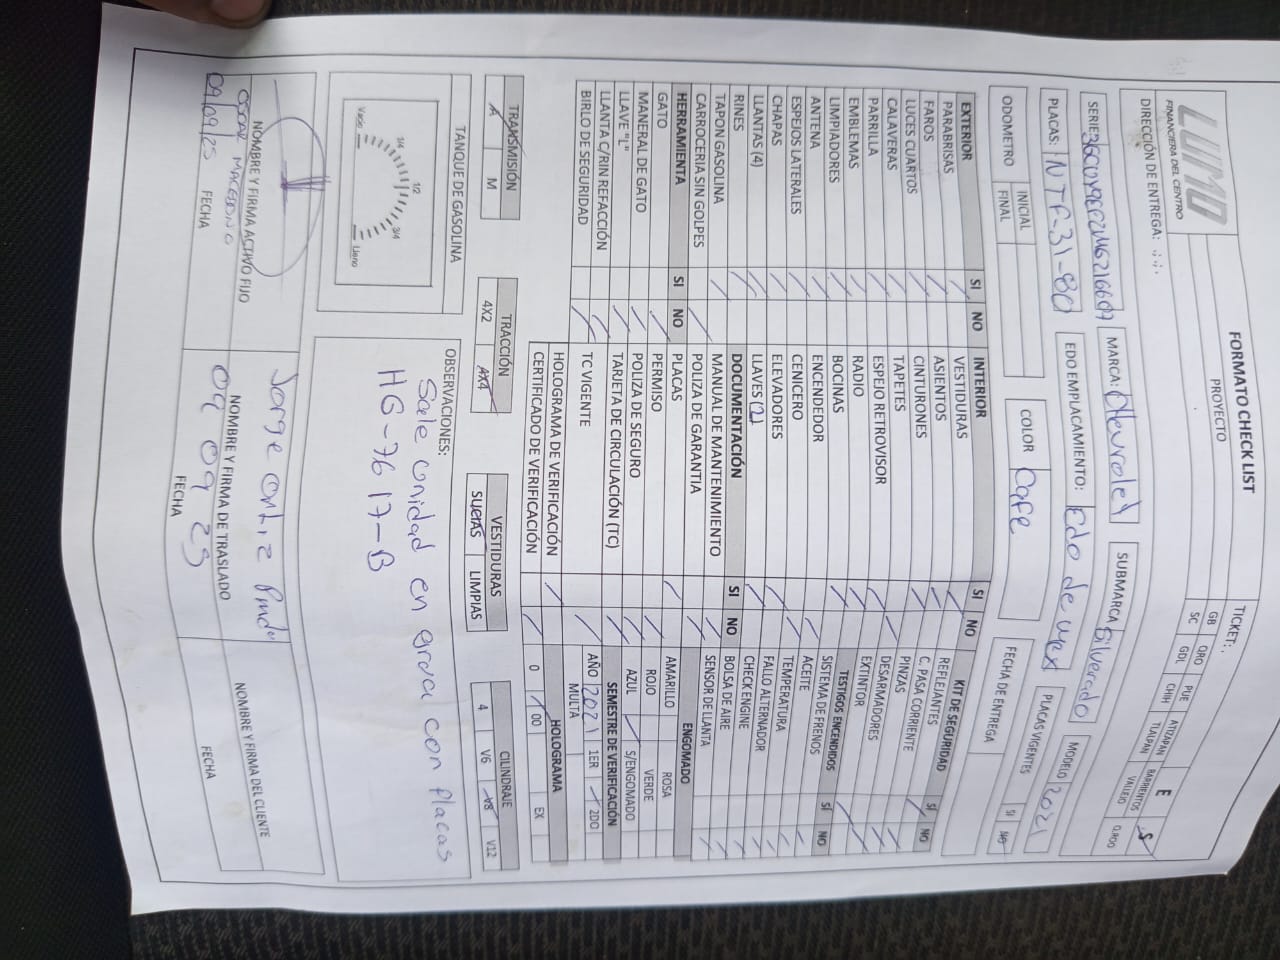 LUMO
FINANCIERA DEL CENTRO
FORMATO CHECK LIST
PROYECTO
TICKET:
DIRECCIÓN DE ENTREGA:
GB QRO PUE ATIZAPAN BARRIENTOS
SC GDL CHIH TLALPAN VALLEJO Q.ROO
E S
SERIE: MARCA: Chevrolet SUBMARCA Silverado MODELO 2021
PLACAS: NTF-31-80 EDO EMPLACAMIENTO: Edo de mex PLACAS VIGENTES SI NO
ODOMETRO INICIAL
FINAL
COLOR Cafe
FECHA DE ENTREGA
EXTERIOR SI NO
PARABRISAS
FAROS
LUCES CUARTOS
CALAVERAS
PARRILLA
EMBLEMAS
LIMPIADORES
ANTENA
ESPEJOS LATERALES
CHAPAS
LLANTAS (4)
RINES
TAPON GASOLINA
CARROCERIA SIN GOLPES
HERRAMIENTA SI NO
GATO
MANERAL DE GATO
LLAVE "L"
LLANTA C/RIN REFACCIÓN
BIRLO DE SEGURIDAD
INTERIOR SI NO
VESTIDURAS
ASIENTOS
CINTURONES
TAPETES
ESPEJO RETROVISOR
RADIO
BOCINAS
ENCENDEDOR
CENICERO
ELEVADORES
LLAVES (2)
DOCUMENTACIÓN SI NO
MANUAL DE MANTENIMIENTO
POLIZA DE GARANTIA
PLACAS
PERMISO
POLIZA DE SEGURO
TARJETA DE CIRCULACIÓN (TC)
TC VIGENTE
HOLOGRAMA DE VERIFICACIÓN
CERTIFICADO DE VERIFICACIÓN
KIT DE SEGURIDAD SI NO
REFLEJANTES
C. PASA CORRIENTE
PINZAS
DESARMADORES
EXTINTOR
TESTIGOS ENCENDIDOS SI NO
SISTEMA DE FRENOS
ACEITE
TEMPERATURA
FALLO ALTERNADOR
CHECK ENGINE
BOLSA DE AIRE
SENSOR DE LLANTA
ENGOMADO
AMARILLO ROSA
ROJO VERDE
AZUL S/ENGOMADO
SEMESTRE DE VERIFICACIÓN
AÑO 2021 1ER 2DO
MULTA
HOLOGRAMA
0 00 EX
TRANSMISIÓN
A M
TRACCIÓN
4X2 4X4
VESTIDURAS
SUCIAS LIMPIAS
CILINDRAJE
4 V6 V8 V12
TANQUE DE GASOLINA
Vacio 1/4 1/2 3/4 Lleno
OBSERVACIONES:
Sale unidad en grua con placas
HG-7617-B
OSCAR MACEDONIO
NOMBRE Y FIRMA ACTIVO FIJO
09/09/25
FECHA
Jorge Ortiz
NOMBRE Y FIRMA DE TRASLADO
09 09 25
FECHA
NOMBRE Y FIRMA DEL CLIENTE
FECHA